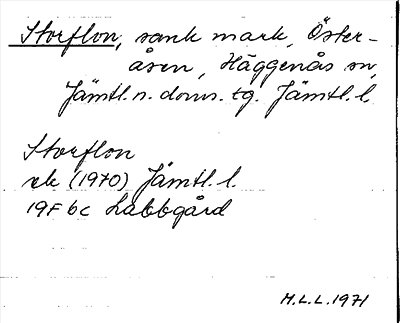 Storflon, sank mark, Öster-
åsen, Häggenås sn,
Jämtl. n. doms. tg. Jämtl. l.
Storflon
ek (1970) Jämtl. l.
19F 6c Labbgård
M.L.L. 1971